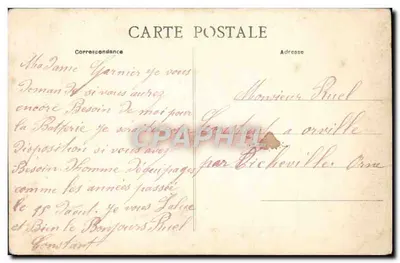 CARTE POSTALE
Correspondance
Adresse
Madame Garnier je vous
demande si vous aurez
encore Besoin de moi pour
la Batterie je
disposition si vous avez
Besoin d'homme d'équipages
comme les années passé
le 15 Août. je vous Salue
et Bien le Bonjours Ruel
Constant
Monsieur Ruel
Constant a orville
par Ticheville Orne
CPAPHIL